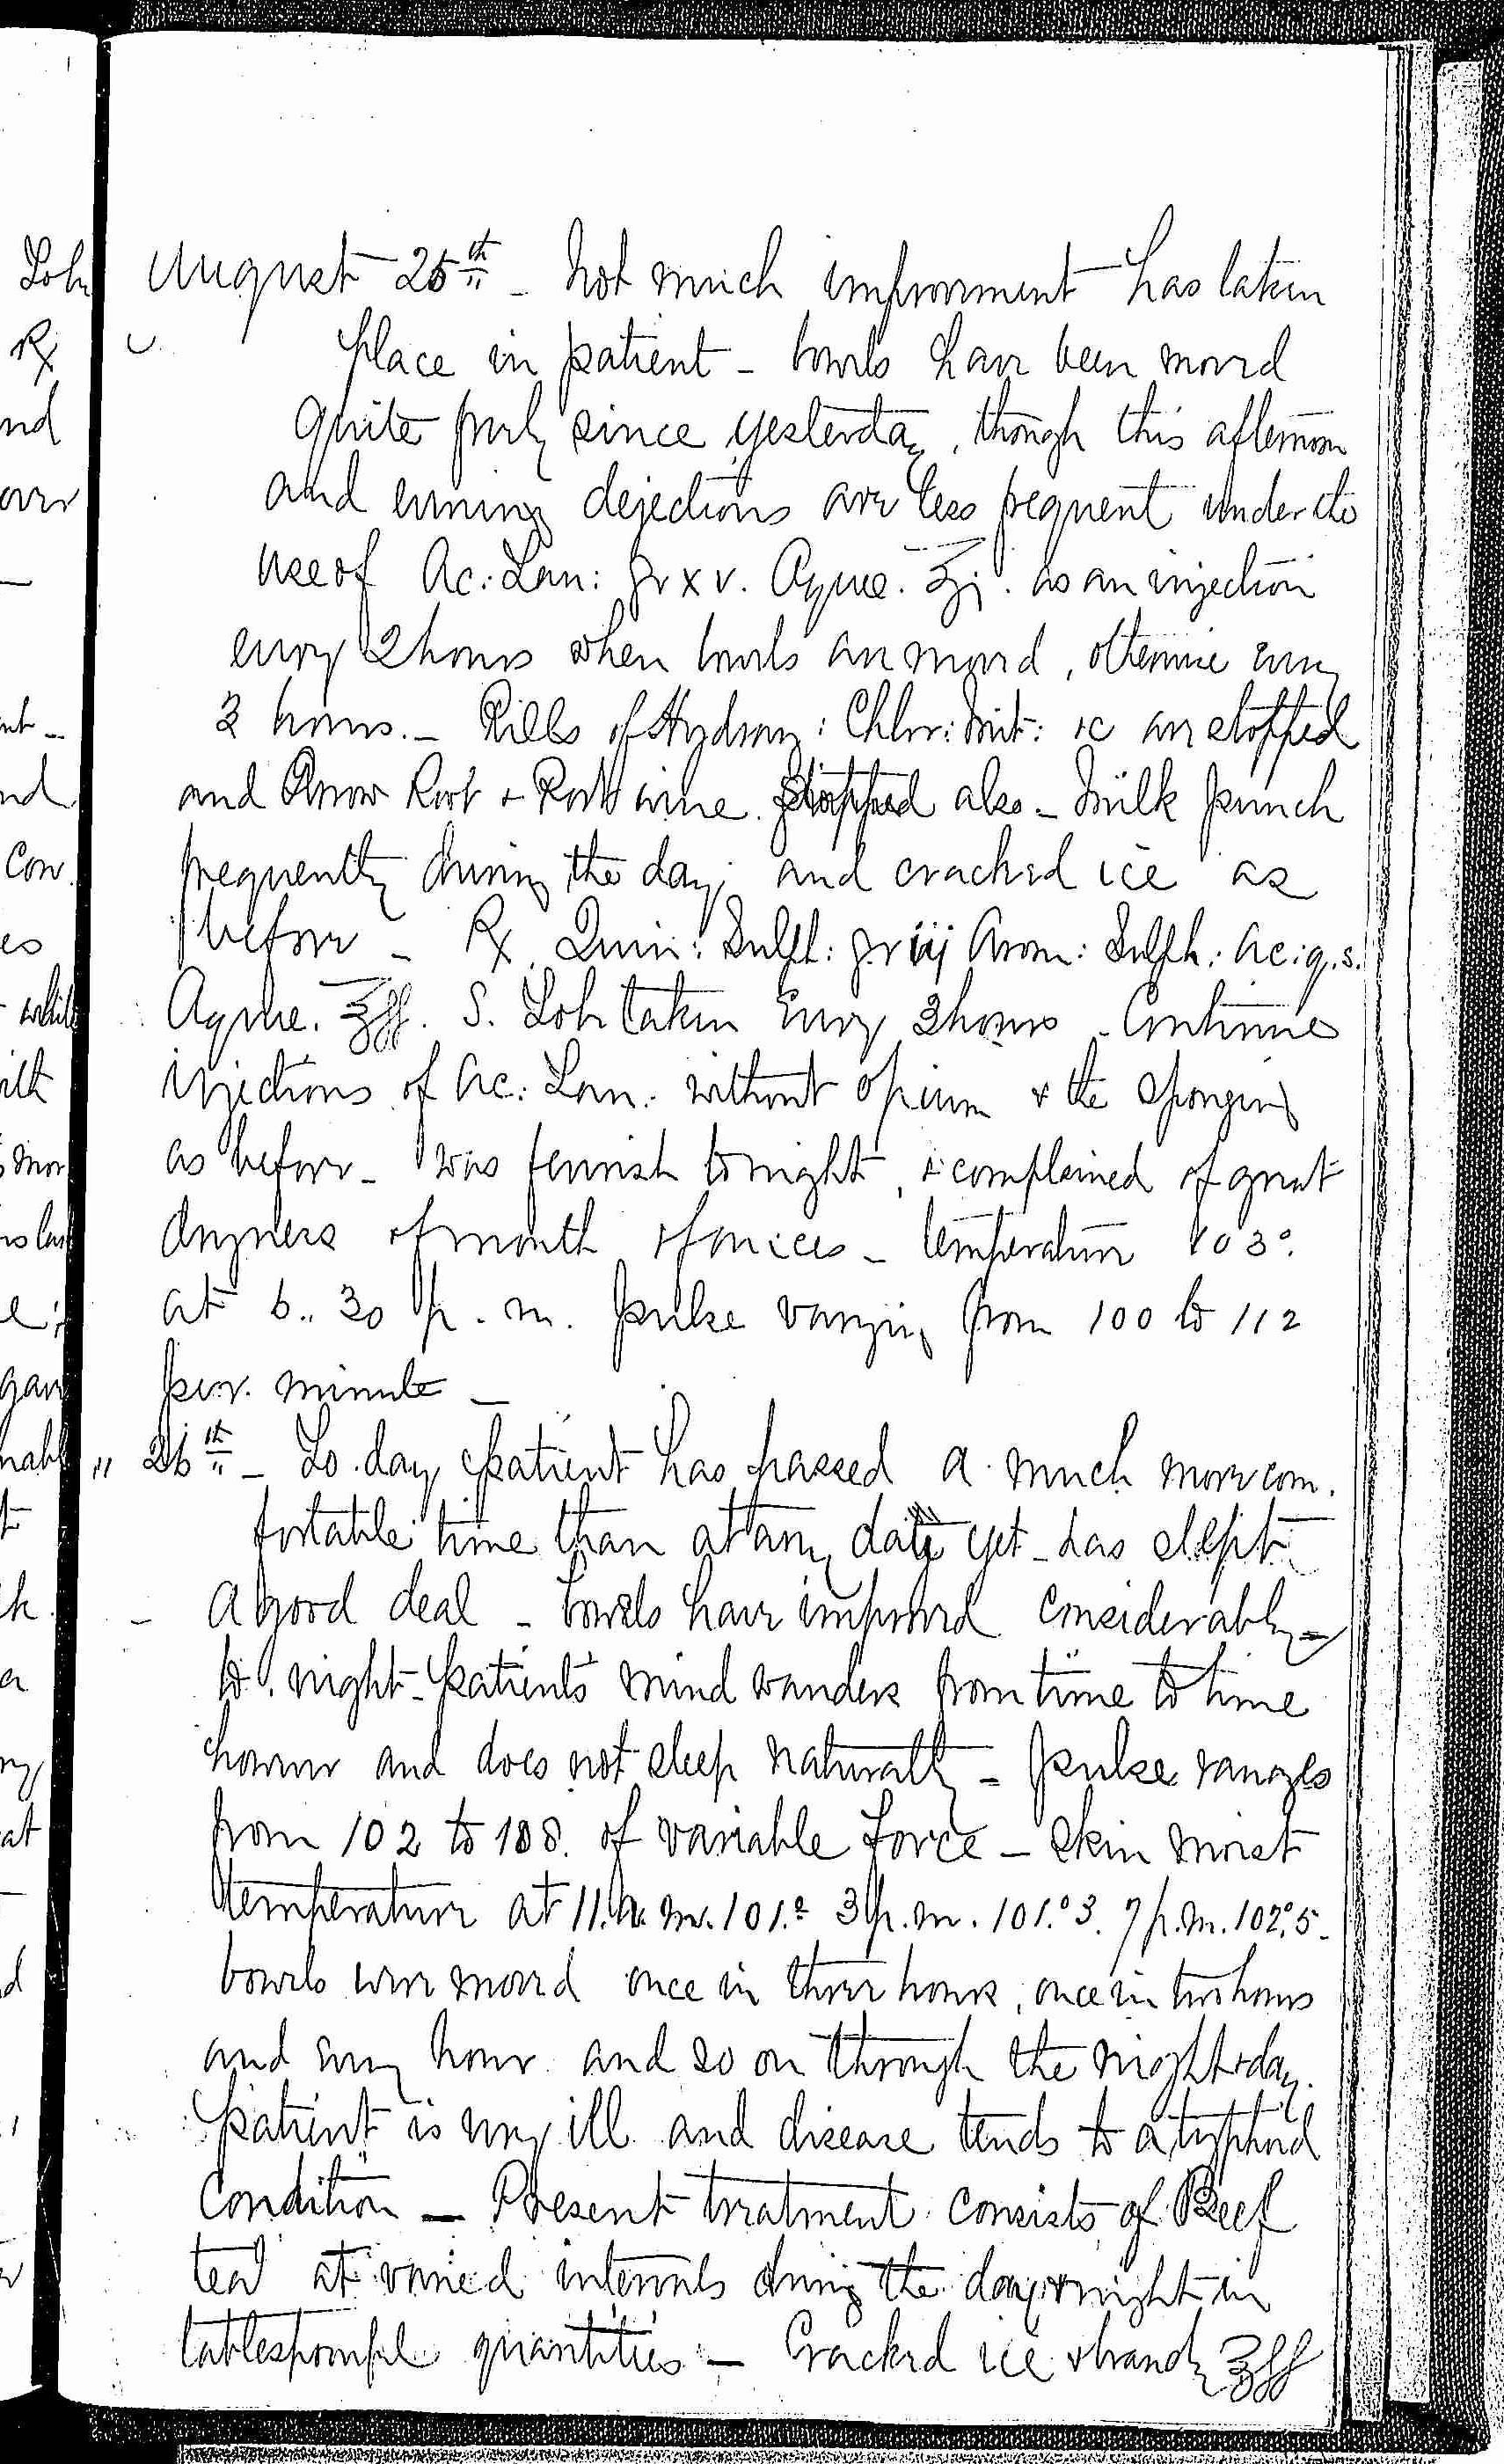 August 25th - Not much improvement has taken
place in patient - bowels have been moved
quite freely since yesterday, though this afternoon
and evening dejections are less frequent under the
use of Ac: Tan: gr xv. Aquae. ℥j. as an injection
every 2 hours when bowels are moved, otherwise every
3 hours. - Pills of Hydrarg: Chlor: Mit: &c are stopped
and Arrow Root & Port wine. stopped also - Milk punch
frequently during the day; and cracked ice as
before - Rx. Quin: Sulph: gr iij Arom: Sulph: Ac: q.s.
Aquae. ℥ss. S. To be taken every 3 hours - Continue
injections of Ac: Tan: without opium & the sponging
as before - was feverish tonight, & complained of great
dryness of mouth & fauces - temperature 103°.
at 6.. 30 p. m. pulse varying from 100 to 112
per. minute -
" 26th - To. day patient has passed a much more com.
fortable time than at any date yet - has slept
a good deal - bowels have improved considerably -
to. night - patient's mind wanders from time to time
however and does not sleep naturally - pulse ranges
from 102 to 108. of variable force - skin moist
temperature at 11. a. m. 101.° 3 p. m. 101.°3. 7 p. m. 102°.5 -
bowels were moved once in three hours, once in two hours
and every hour and so on through the night & day.
patient is very ill and disease tends to a typhoid
condition - Present treatment consists of Beef
tea at varied intervals during the day & night in
tablespoonful quantities - Cracked ice & brandy ℥ss